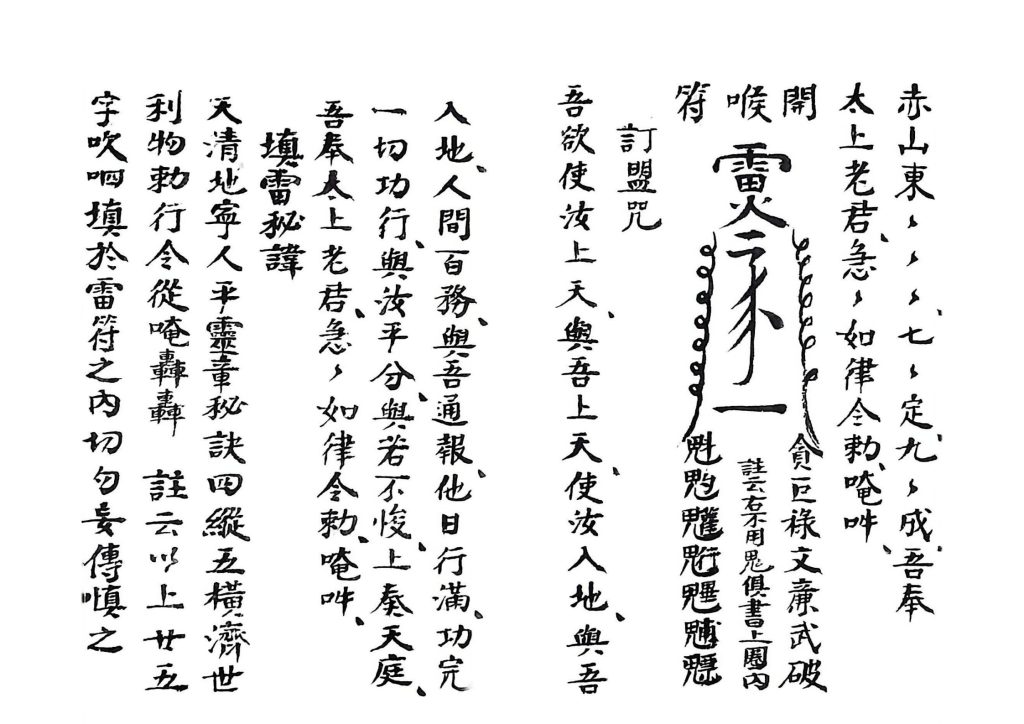 赤山東〻〻〻、七〻定九、〻成、吾奉
太上老君、急〻如律令勅、唵吽、
開喉符
雷火
一
貪巨祿文廉武破
註云右不用鬼俱書上圈內
魁
訂盟咒
吾欲使汝上天、與吾上天、使汝入地、與吾
入地、人間百務、與吾通報、他日行滿、功完
一切功行、與汝平分、與若不悛、上奏天庭、
吾奉太上老君、急〻如律令勅、唵吽、
填雷秘諱
天清地寧人平靈章秘訣四縱五橫濟世
利物勅行令從唵轟轟 註云以上廿五
字吹呬填於雷符之內切勿妄傳慎之